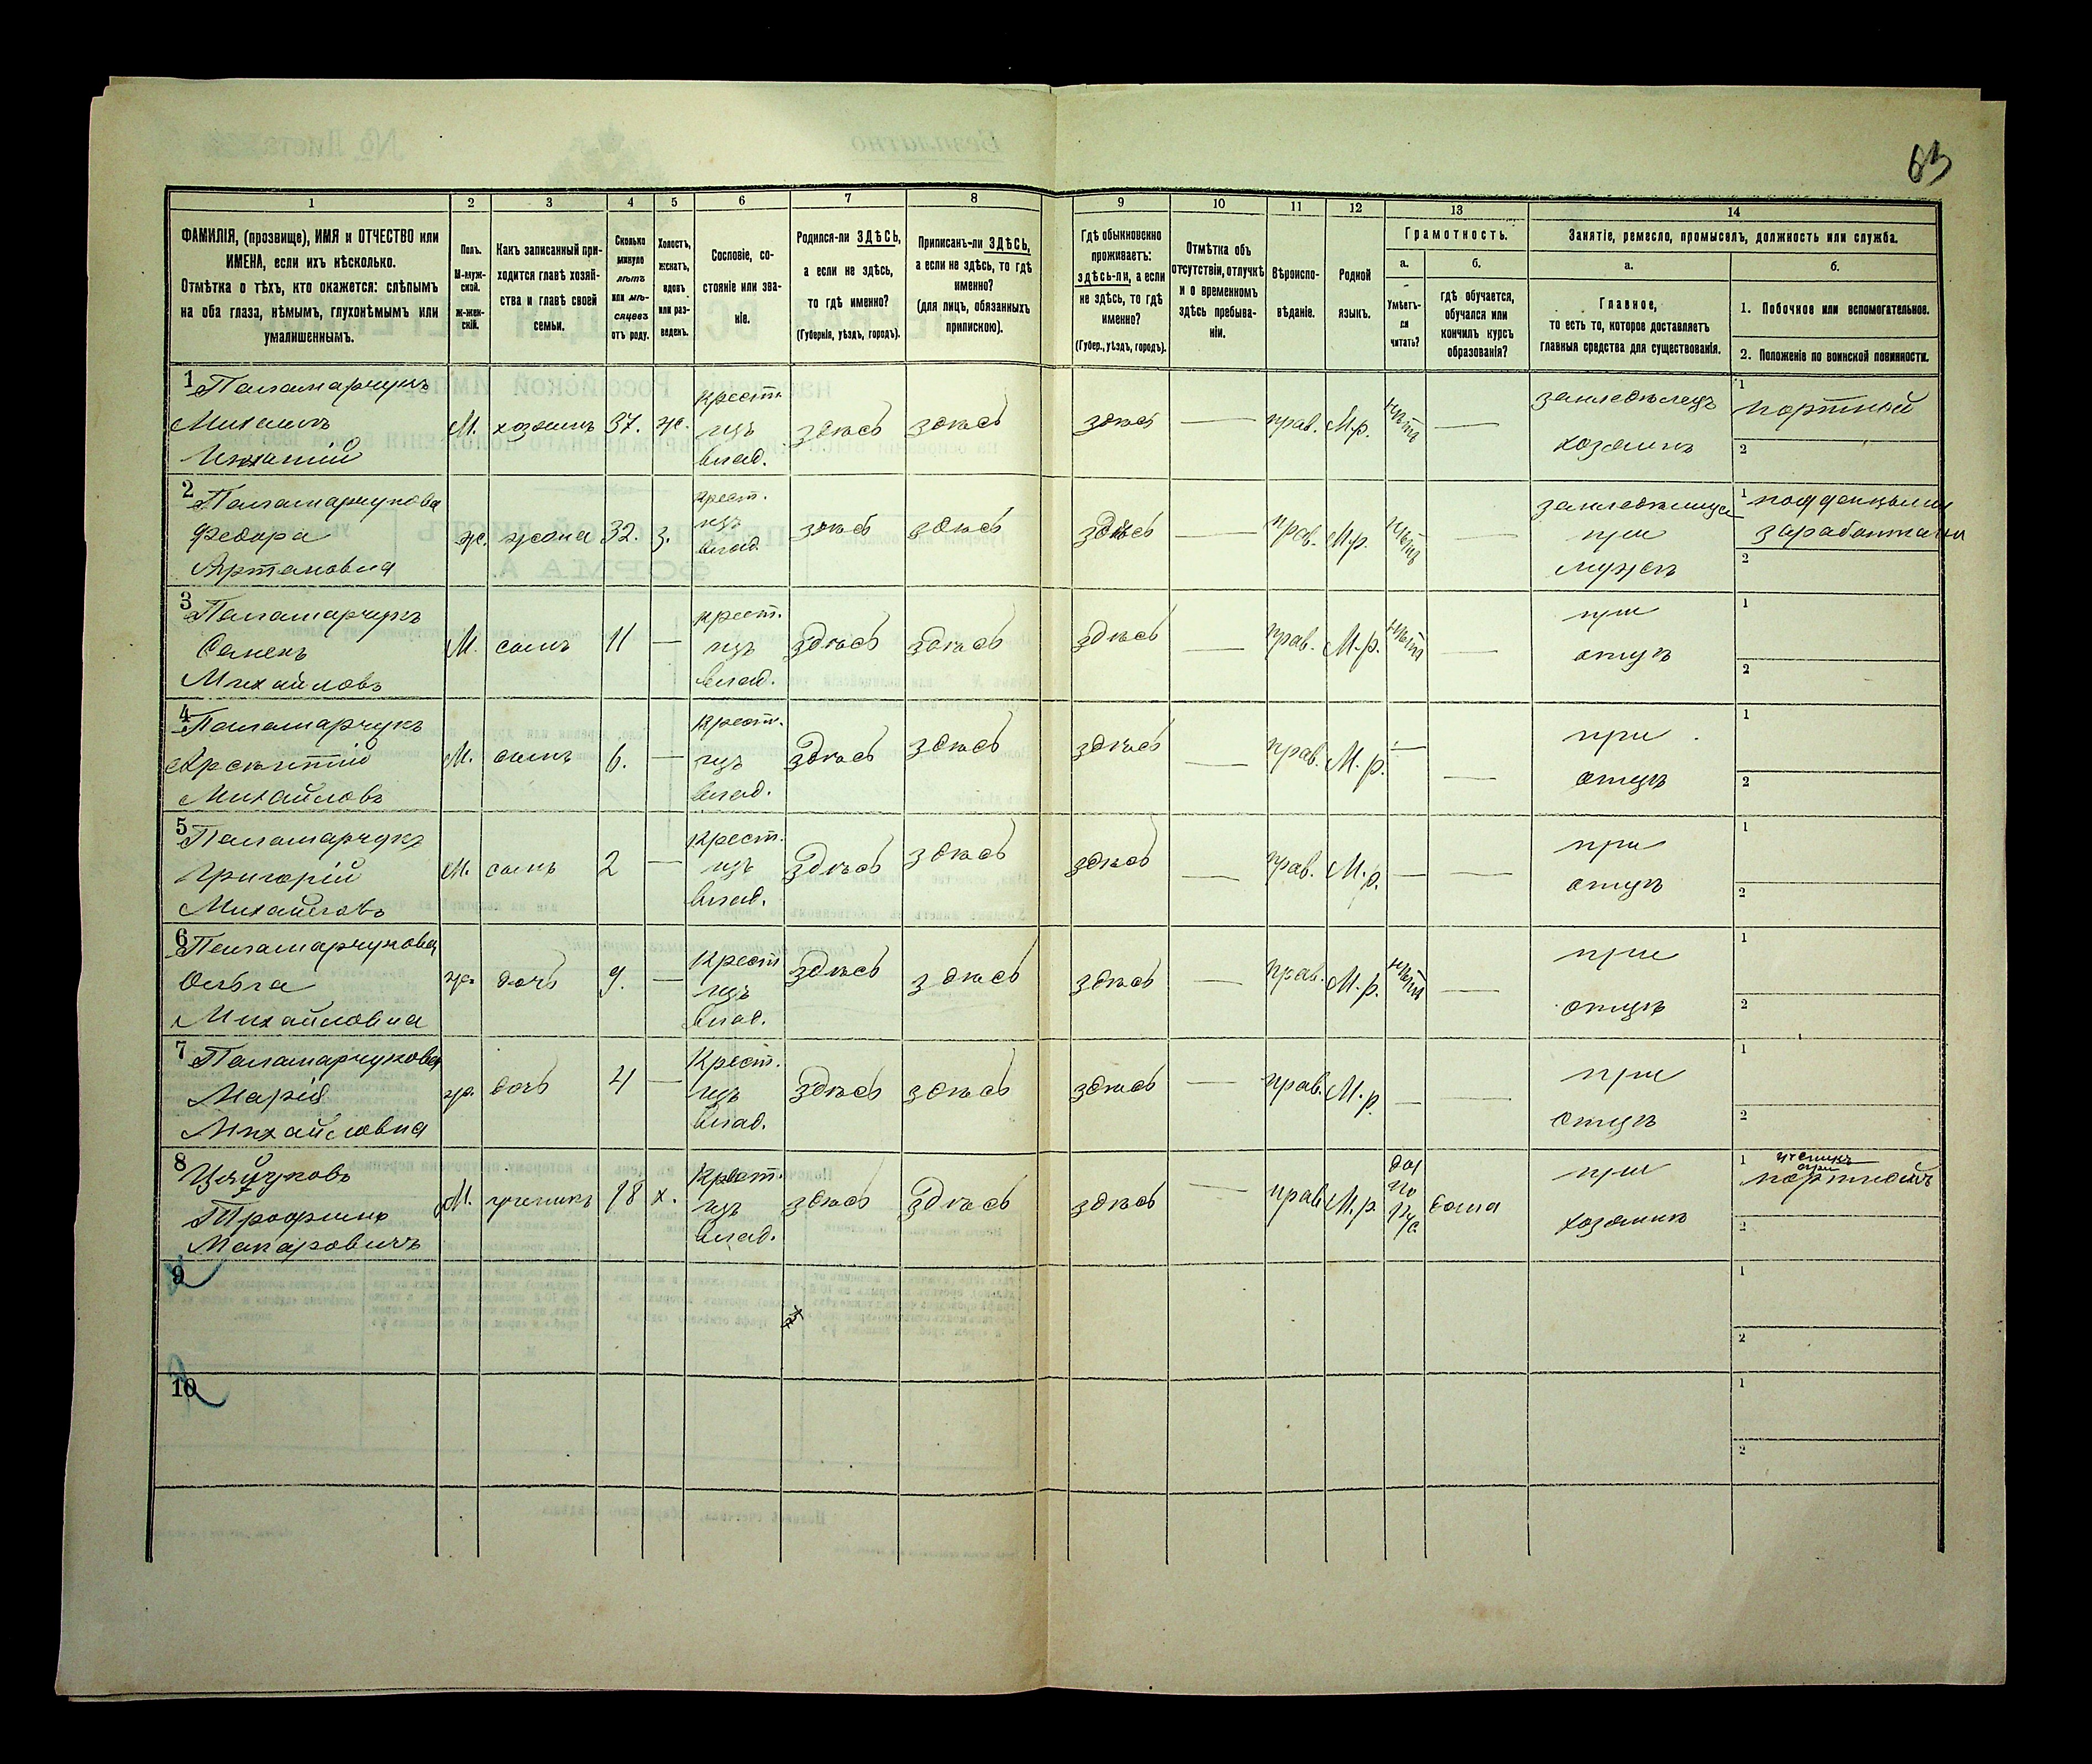 63
1 2 3 4 5 6 7 8 9 10 11 12 13 14
ФАМИЛІЯ, (прозвище), ИМЯ и ОТЧЕСТВО или
ИМЕНА, если ихъ нѣсколько.
Отмѣтка о тѣхъ, кто окажется: слѣпымъ
на оба глаза, нѣмымъ, глухонѣмымъ или
умалишеннымъ.
Полъ.
М-муж-
ской.
Ж-жен-
скій.
Какъ записанный при-
ходится главѣ хозяй-
ства и главѣ своей
семьи.
Сколько
минуло
лѣтъ
или мѣ-
сяцевъ
отъ роду.
Холостъ,
женатъ,
вдовъ
или раз-
веденъ.
Сословіе, со-
стояніе или зва-
ніе.
Родился-ли ЗДѢСЬ,
а если не здѣсь,
то гдѣ именно?
(Губернія, уѣздъ, городъ).
Приписанъ-ли ЗДѢСЬ,
а если не здѣсь, то гдѣ
именно?
(для лицъ, обязанныхъ
припискою).
Гдѣ обыкновенно
проживаетъ:
здѣсь-ли, а если
не здѣсь, то гдѣ
именно?
(Губер., уѣздъ, городъ).
Отмѣтка объ
отсутствіи, отлучкѣ
и о временномъ
здѣсь пребыва-
ніи.
Вѣроиспо-
вѣданіе.
Родной
языкъ.
Грамотность.
а.
Умѣетъ-
ли
читать?
б.
гдѣ обучается,
обучался или
кончилъ курсъ
образованія?
Занятіе, ремесло, промыселъ, должность или служба.
а.
Главное,
то есть то, которое доставляетъ
главныя средства для существованія.
б.
1. Побочное или вспомогательное.
2. Положеніе по воинской повинности.
1 Паламарчукъ
Михаилъ
М. хозяинъ 37. ж.
крест.
изъ
влад.
здѣсь здѣсь здѣсь — прав. М.р. нѣтъ —
земледѣлецъ
хозяинъ
1 портной
2
2 Паламарчукова
Федора
Артемовна
ж. жена 32. з.
крест.
изъ
влад.
здѣсь здѣсь здѣсь — прав. М.р. нѣтъ —
при
мужѣ
1
2
3 Паламарчукъ
Семенъ
Михайловъ
М. сынъ 11 —
крест.
изъ
влад.
здѣсь здѣсь здѣсь — прав. М.р. нѣтъ —
при
отцѣ
1
2
4 Паламарчукъ
Михайловъ
М. сынъ 6. —
крест.
изъ
влад.
здѣсь здѣсь здѣсь — прав. М.р. — —
при
отцѣ
1
2
5 Паламарчукъ
Григорій
Михайловъ
М. сынъ 2 —
крест.
изъ
влад.
здѣсь здѣсь здѣсь — прав. М.р. — —
при
отцѣ
1
2
6 Паламарчукова
Ольга
Михайловна
ж. дочь 9. —
крест.
изъ
влад.
здѣсь здѣсь здѣсь — прав. М.р. нѣтъ —
при
отцѣ
1
2
7 Паламарчукова
Марія
Михайловна
ж. дочь 4 —
крест.
изъ
влад.
здѣсь здѣсь здѣсь — прав. М.р. — —
при
отцѣ
1
2
8
Трофимъ
Макаровичъ
М. ученикъ 18 х.
крест.
изъ
влад.
здѣсь здѣсь здѣсь — прав. М.р. да по рус. дома
при
хозяинѣ
1 ученикъ
при
портномъ
2
9
1
2
10
1
2